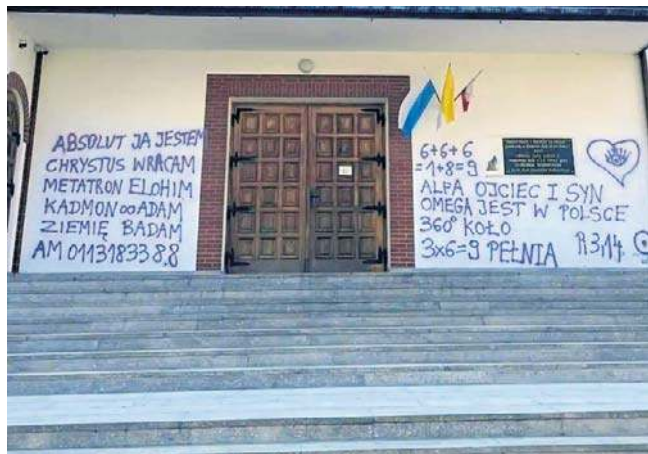 ABSOLUT JA JESTEM
CHRYSTUS WRACAM
METATRON ELOHIM
KADMON ∞ ADAM
ZIEMIĘ BADAM
AM 0113183388
6+6+6
=1+8=9
ALFA OJCIEC I SYN
OMEGA JEST W POLSCE
360° KOŁO
3x6=9 PEŁNIA
R3,14